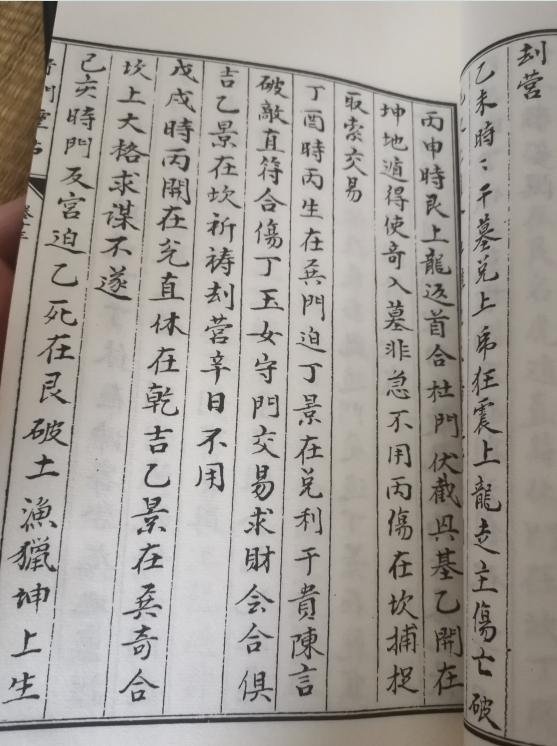 刦营
乙未時時干墓兑上帍狂震上龍走主傷亡破
丙申時艮上龍返首合杜門伏截與基乙開在
坤地遁得使奇入墓非急不用丙傷在坎捕捉
取索交易
丁酉時丙生在巽門迫丁景在兑利于貴陳言
破敵直符合傷丁玉女守門交易求財会合俱
吉乙景在坎祈祷刦营辛日不用
戊戌時丙開在兑直休在乾吉乙景在巽奇合
坎上大格求谋不遂
己亥時門反宮迫乙死在艮破土漁獵坤上生
卷三